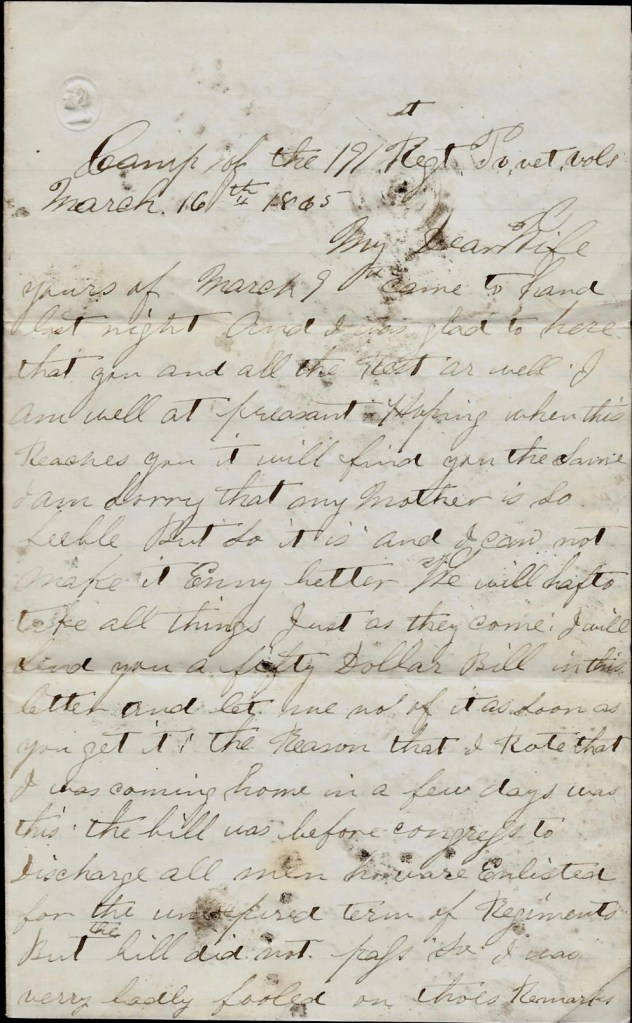 Camp of the 191st Regt. Pv. vet. vols
March. 16th 1865
My Dear Wife
yours of March 9th came to hand
last night And I was glad to here
that you and all the Rest ar well. I
am well at preasant Hoping when this
Reaches you it will find you the same
I am Sorry that my Mother is So
feeble But So it is and I can not
make it Enny better We will hafto
take all things Just as they come. I will
Send you a fifty Dollar Bill in this
letter and let me no of it as Soon as
you get it. the Reason that I Rote that
I was coming home in a few days was
this. the bill was before congress to
Discharge all men howare Enlisted
for the unexpired term of Regiments
But the bill did not pass So I was
verry badly fooled on thois Remarks